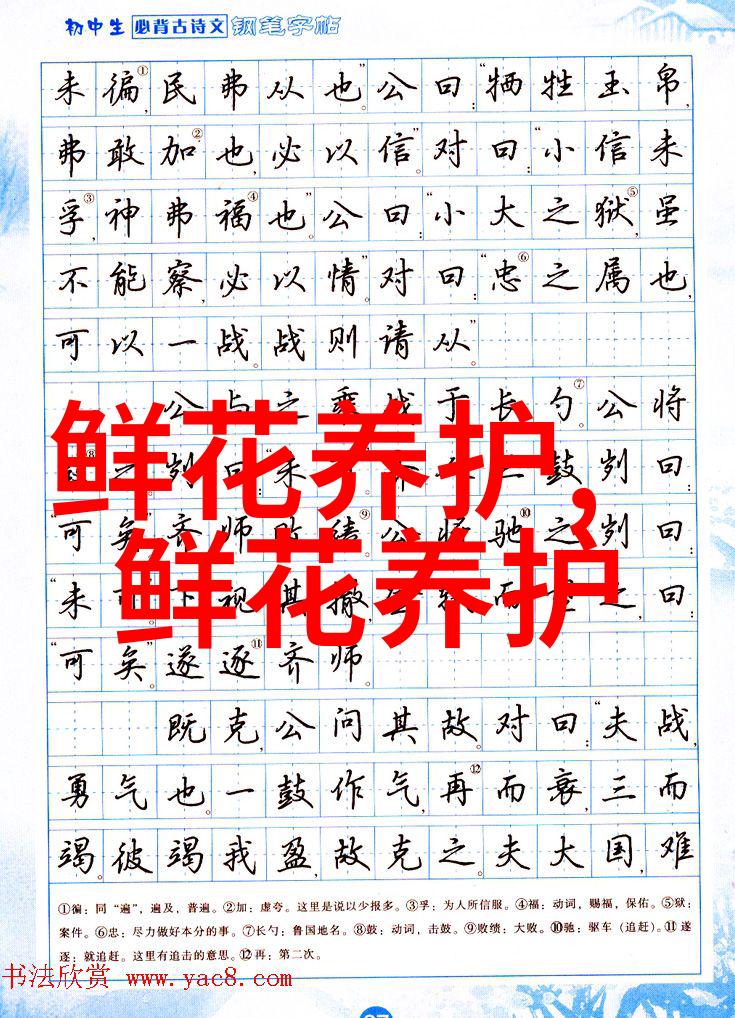 初中生 必背古诗文 钢笔字帖
未徧①,民弗从也。”公曰:“牺牲玉帛,
弗敢加②也,必以信。”对曰:“小信未
孚③,神弗福④也。”公曰:“小大之狱⑤,虽
不能察,必以情。”对曰:“忠⑥之属也,
可以一战。战则请从。”
公与之乘 战于长勺⑦。公将
⑧之 刿曰:“未 鼓 刿曰:
“可矣”齐师败绩⑨公将驰⑩之。刿曰:
“未可 下视其 而 之,曰:
“可矣。”遂逐⑪齐师。
既克,公问其故。对曰:“夫战,
勇气也。一鼓作气,再⑫而衰,三而
竭。彼竭我盈,故克之。夫大国,难
鲜花养护,
鲜花养护
①徧:同“遍”,遍及,普遍。②加:虚夸。这里是说以少报多。③孚:为人所信服。④福:动词,赐福,保佑。⑤狱:
案件。⑥忠:尽力做好本分的事。⑦长勺:鲁国地名。⑧鼓:动词,击鼓。⑨败绩:大败。⑩驰:驱车(追赶)。⑪遂
逐:就追赶。这里有追击的意思。⑫再:第二次。
书法欣赏 www.yac8.com